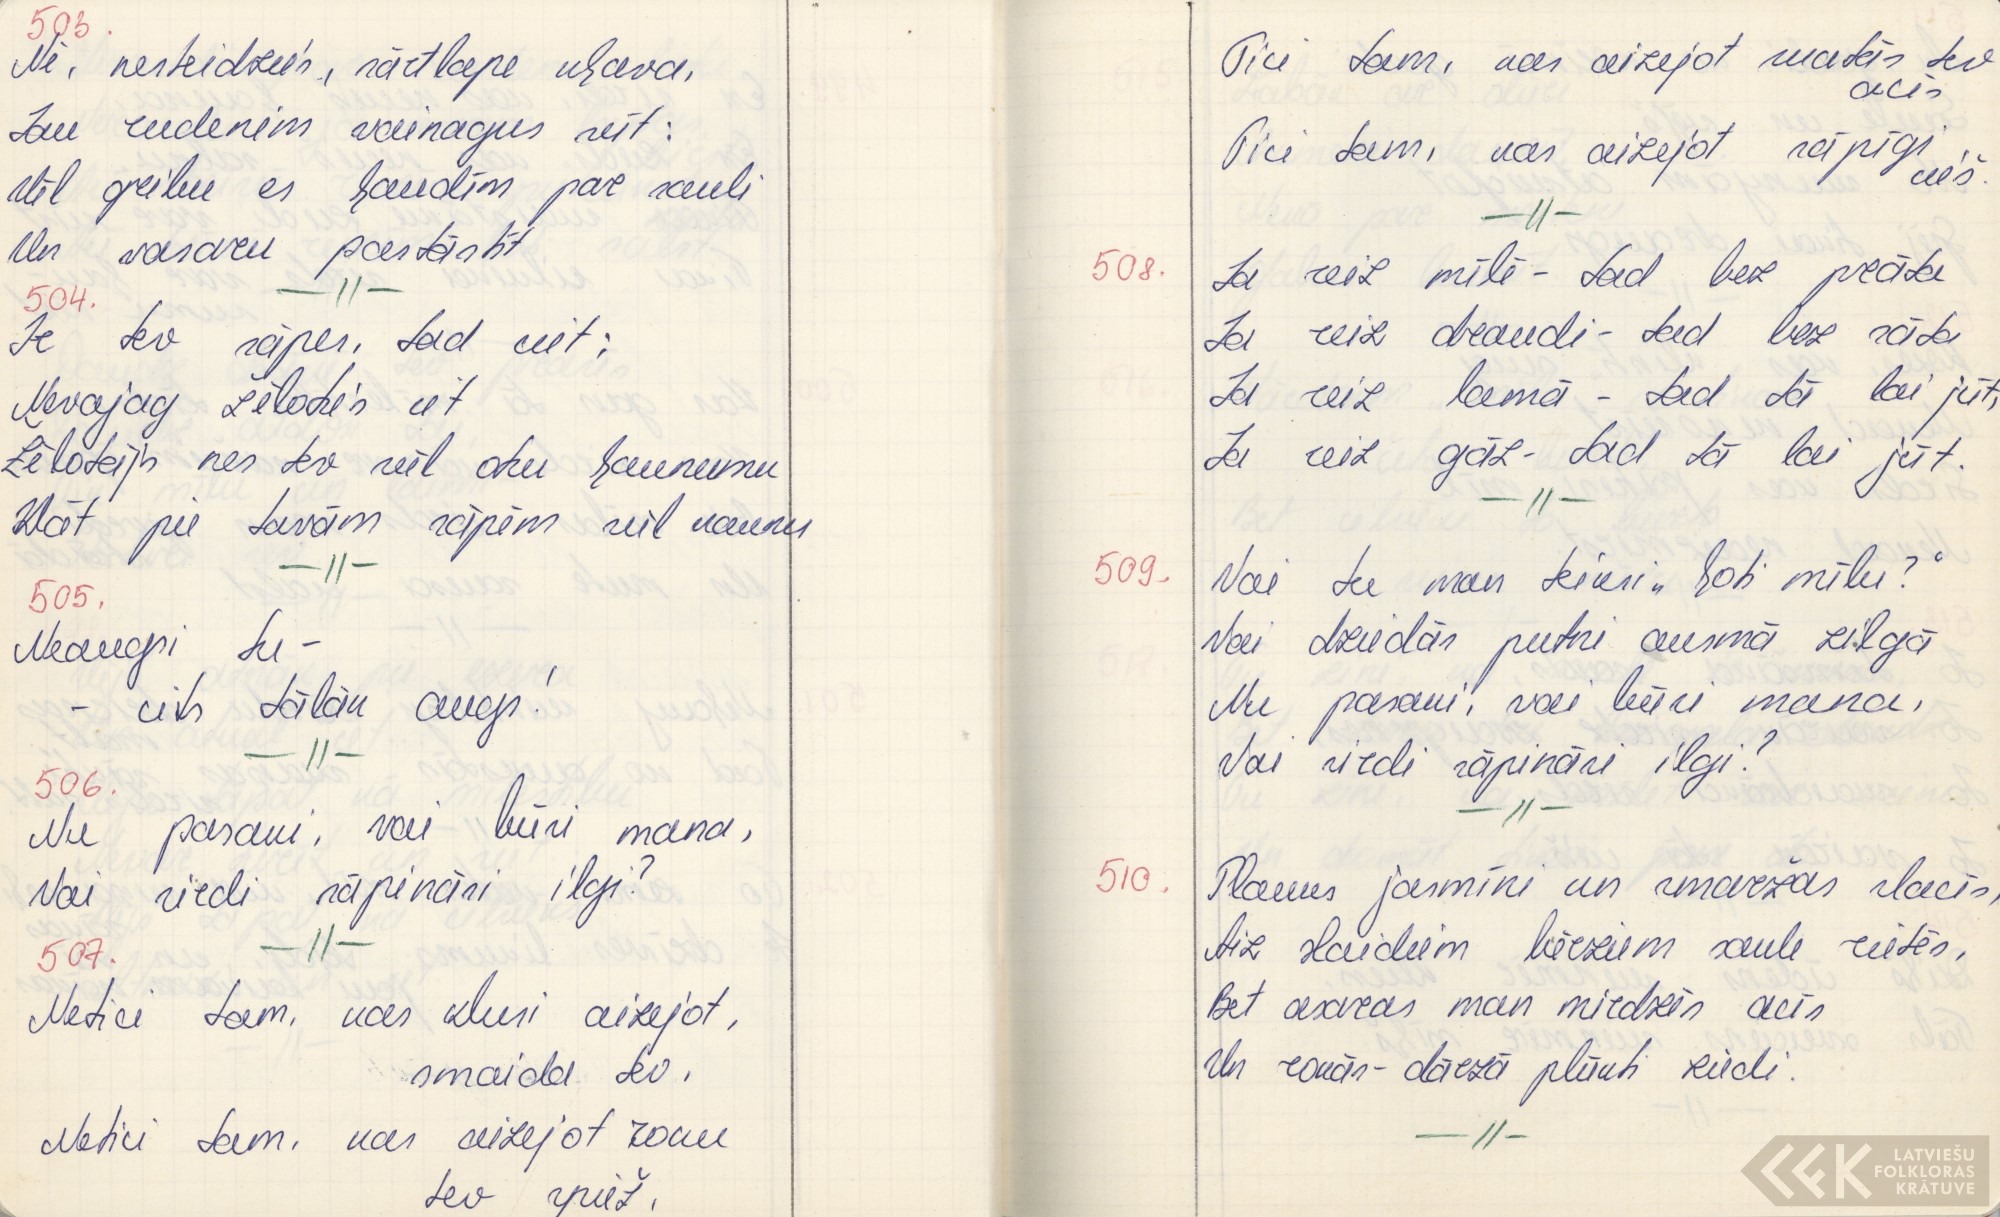 503.
Nē, nesteidzies, sārtlape kļava,
Jau rudenim vainagus vīt;
Vēl gribu es ļaudīm par sauli
Un vasaru pastāstīt
—//—
504.
Ja tev sāpes, tad ciet;
Nevajag žēloties iet
Žēlotājs nes tev vēl otru ļaunumu
Klāt pie tavām sāpēm vēl kaunu
—//—
505.
Neaugsi tu –
– cits tālāk augs!
—//—
506.
Nu pasaki, vai būsi mana,
Vai sirdi sāpināsi ilgi?
—//—
507.
Netici tam, kas klusi aizejot,
smaida tev,
Netici tam, kas aizejot roku
tev spiež,
Tici tam, kas aizejot skatās tev
acīs
Tici tam, kas aizejot sāpīgi
cieš.
—//—
508.
Ja reiz mīli – tad bez prāta
Ja reiz draudi – tad bez sāta
Ja reiz lamā – tad tā lai jūt,
Ja reiz gāz – tad tā lai jūt.
—//—
509.
Vai tu man teiksi „ļoti mīlu?“
Vai dziedās putni ausmā zilgā
Nu pasaki, vai būsi mana,
Vai sirdi sāpināsi ilgi?
—//—
510.
Plauks jasmīni un smaržas slacīs,
Aiz slaidiem bērziem saule rietēs,
Bet asaras man mirdzēs acīs
Un rokās – dārzā plūkti ziedi.
—//—
LATVIEŠU
FOLKLORAS
KRĀTUVE